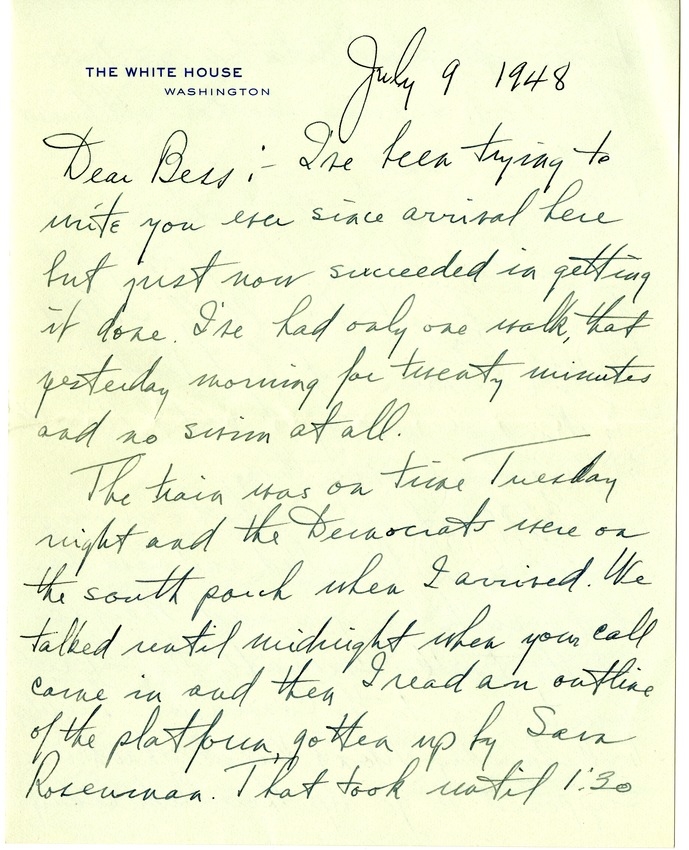 THE WHITE HOUSE
WASHINGTON
July 9 1948
Dear Bess :- I've been trying to
write you ever since arrival here
but just now succeeded in getting
it done. I've had only one walk, that
yesterday morning for twenty minutes
and no swim at all.
The train was on time Tuesday
night and the Democrats were on
the south porch when I arrived. We
talked until midnight when your call
came in and then I read an outline
of the platform, gotten up by Sam
Rosenman. That took until 1:30